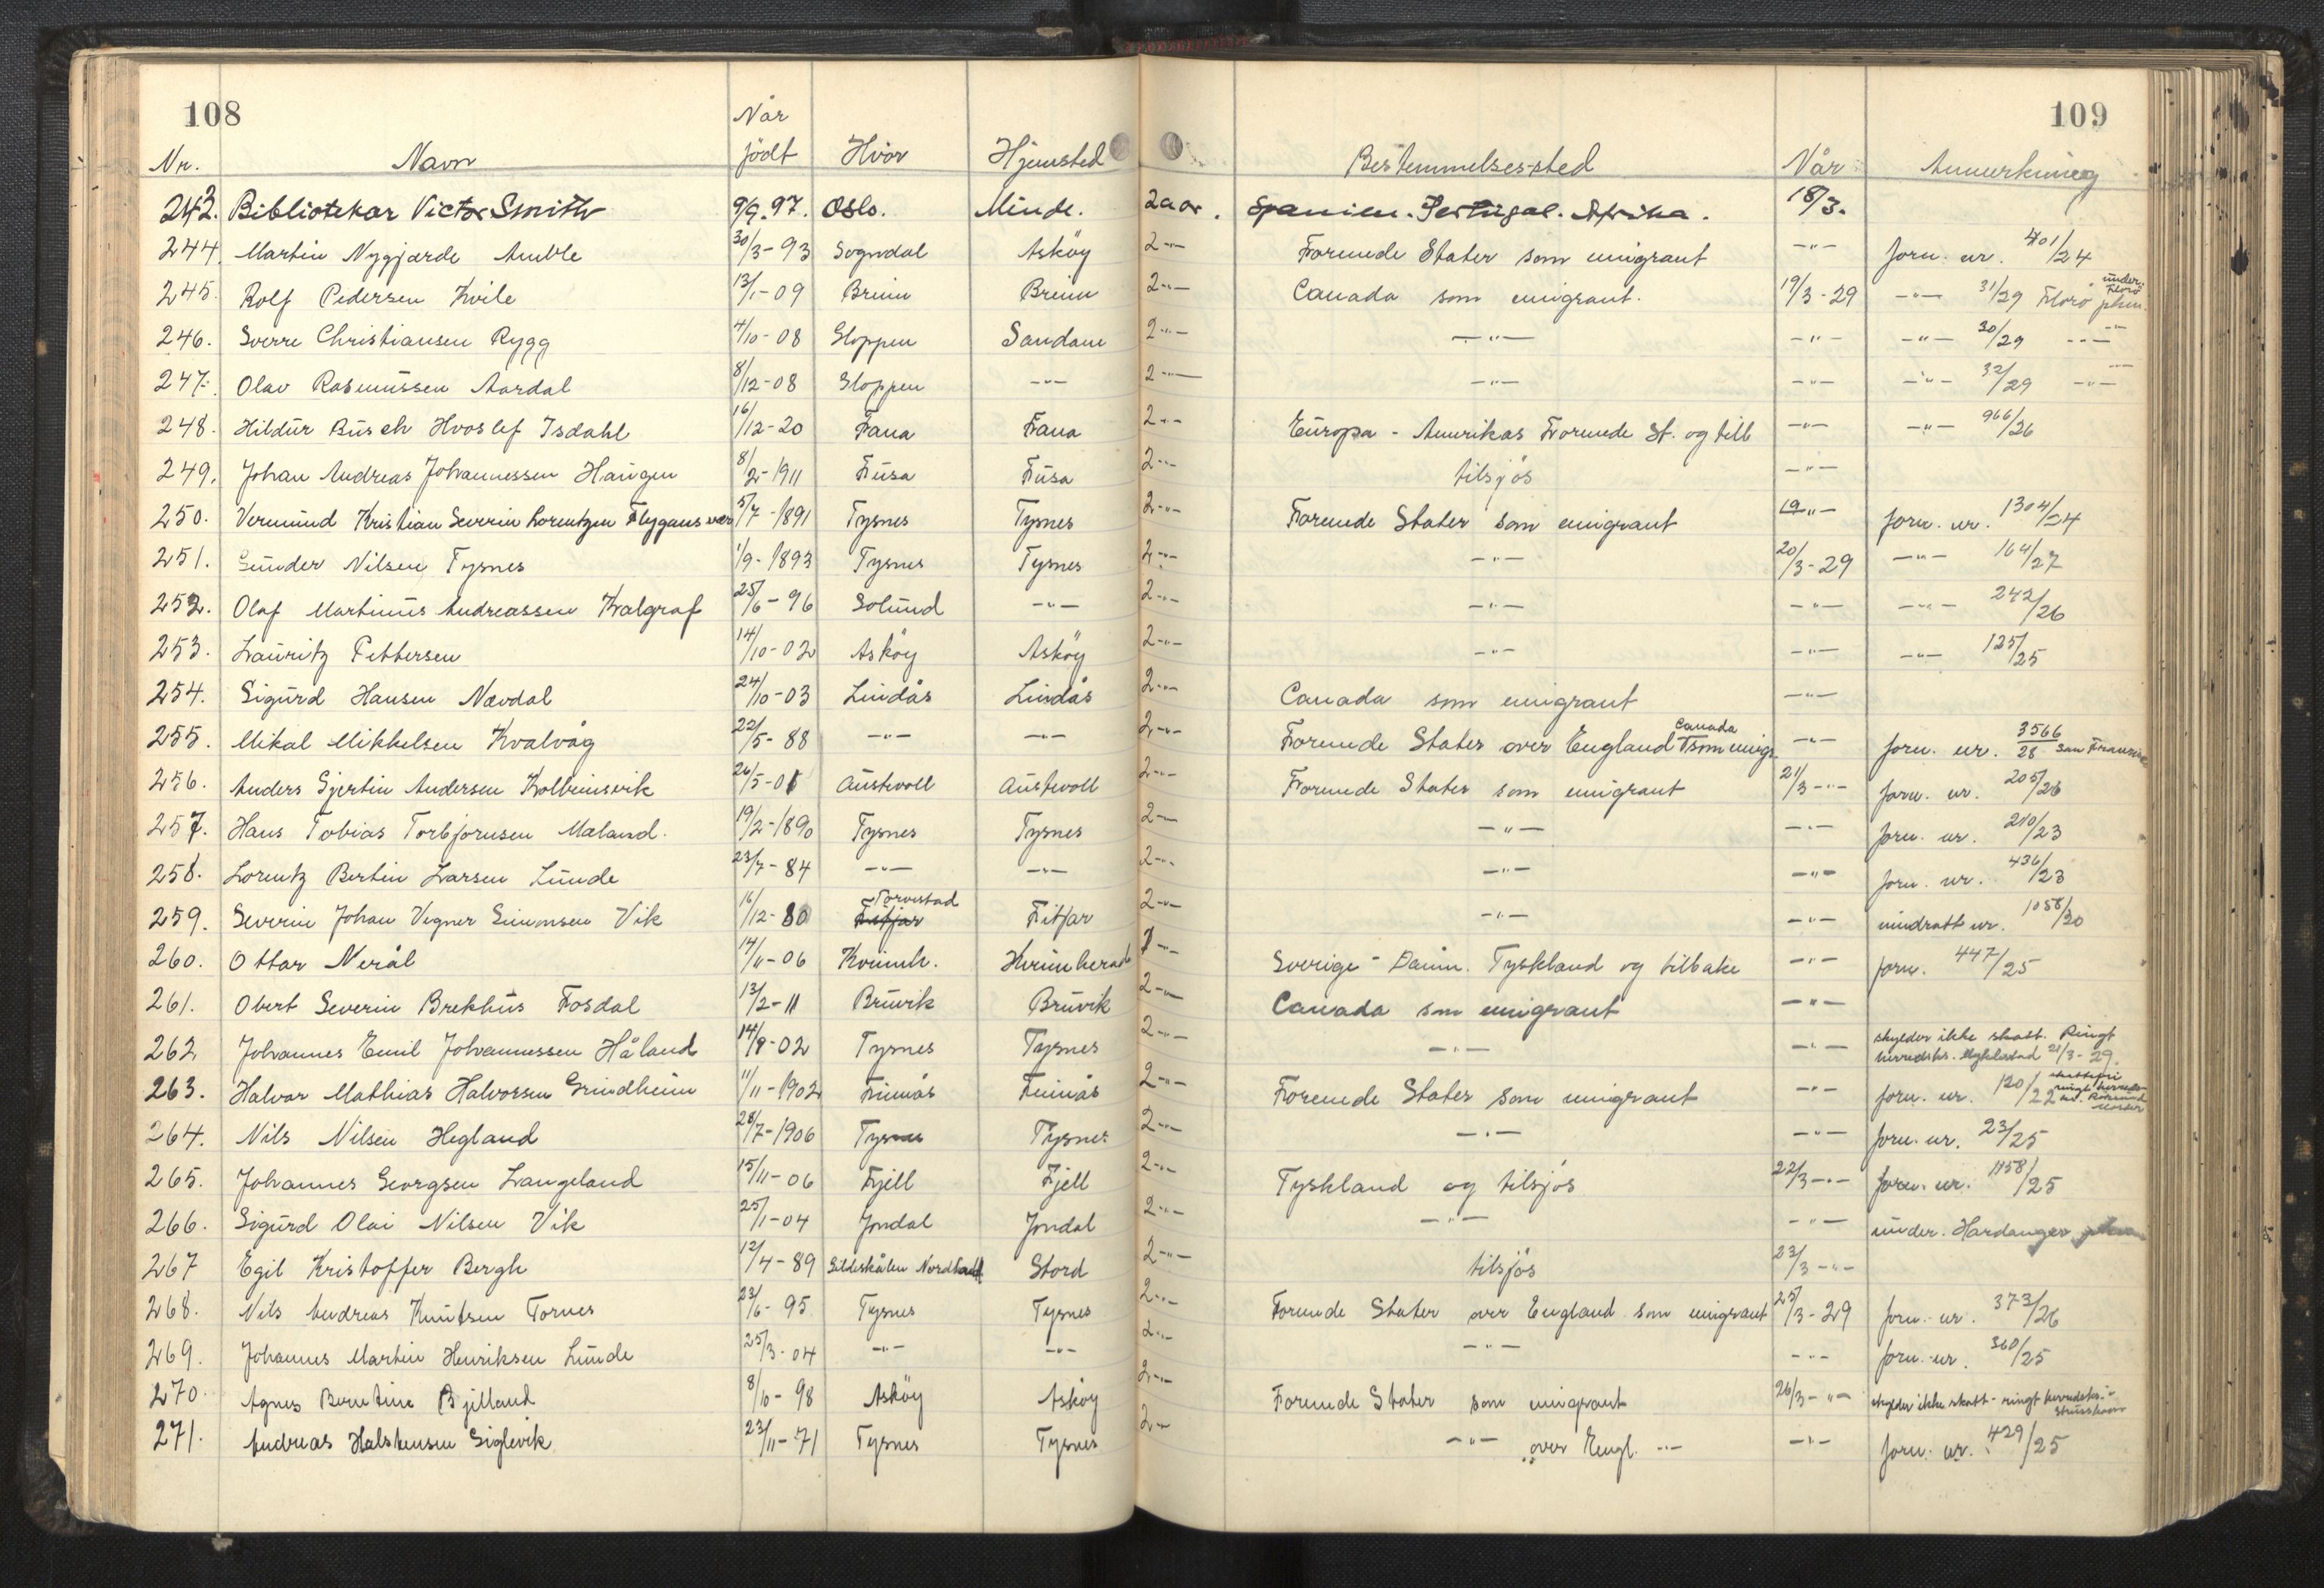 108
109
Når
Nr. Navn födt Hvor Hjemsted Bestemmelsessted Når Anmerkning
243. Bibliotekar Victor Smith 9/9.97. Oslo. Minde. 2 aar. Spanien. Portugal. Afrika. 18/3.
244. Martin Nygjærde Amble 30/3-93 Sogndal Asköy 2 -"- Forenede Stater som emigrant -"- forn. nr. 401/24
245. Rolf Pedersen Kvile 13/1-09 Breim Breim 2 -"- Canada som emigrant. 19/3-29 -"- 31/29 Florö
246. Sverre Christiansen Rygg 4/10-08 Gloppen Sandane 2 -"- -"- -"- -"- 30/29 -"-
247. Olav Rasmussen Aardal 8/12-08 Gloppen -"- 2 -"- -"- -"- -"- 32/29 -"-
248. Hildur Busch Hvoslef Isdahl 16/12-20 Fana Fana 2 -"- Europa - Amerikas Forenede St. og tilb -"- -"- 966/26
249. Johan Andreas Johannessen Haugen 8/2-1911 Fusa Fusa 2 -"- tilsjös -"-
250. Vermund Kristian Severin Lorentzen Flygansvær 5/7-1891 Tysnes Tysnes 2 -"- Forenede Stater som emigrant 19 -"- forn. nr. 1304/24
251. Gunder Nilsen Tysnes 1/9-1893 Tysnes Tysnes 2 -"- -"- 20/3-29 -"- 164/27
252. Olaf Martinus Andreassen Kalgraf 25/6-96 Solund -"- 2 -"- -"- -"- -"- 242/26
253. Lauritz Pettersen 14/10-02 Asköy Asköy 2 -"- -"- -"- -"- 125/25
254. Sigurd Hansen Nævdal 24/10-03 Lindås Lindås 2 -"- Canada som emigrant -"-
255. Mikal Mikkelsen Kvalvåg 22/5-88 -"- -"- 2 -"- Forenede Stater over England Canada som emigr -"- forn. nr. 3566/28 San Fransisco
256. Anders Gjertin Andersen Kolbeinsvik 26/5-01 Austevoll Austevoll 2 -"- Forenede Stater som emigrant 21/3 -"- forn. nr. 205/26
257. Hans Tobias Torbjørnsen Mæland. 19/2-1890 Tysnes Tysnes 2 -"- -"- -"- forn. nr. 210/23
258. Lorentz Bertin Larsen Lunde 23/7-84 -"- -"- 2 -"- -"- -"- forn. nr. 436/23
259. Severin Johan Vegner Simonsen Vik 16/12-80 Fitjar Torvestad Fitjar 2 -"- -"- -"- inndratt nr. 1058/20
260. Ottar Nerål 14/11-06 Kvinnh. Kvinnherad 1 -"- Sverige - Danm. Tyskland og tilbake -"- forn. 447/25
261. Obert Severin Brekhus Fosdal 13/2-11 Bruvik Bruvik 2 -"- Canada som emigrant -"-
262 Johannes Emil Johannessen Håland 14/8-02 Tysnes Tysnes 2 -"- -"- -"- skylder ikke skatt. Ringt herredsks. Myklestad 21/3-29.
263. Halvar Mathias Halvorsen Grindheim 11/11-1902 Finnås Finnås 2 -"- Forenede Stater som emigrant -"- forn. nr. 120/22 skattefri ringt herreds
264. Nils Nilsen Hegland 28/7-1906 Tysnes Tysnes 2 -"- -"- -"- forn. nr. 23/25
265. Johannes Georgsen Langeland 15/11-06 Fjell Fjell 2 -"- Tyskland og tilsjös 22/3 -"- forn. nr. 1158/25
266. Sigurd Olai Nilsen Vik 25/1-04 Jondal Jondal 2 -"- -"- -"- under. Hardanger
267 Egil Kristoffer Bergh 12/4-89 Gildeskålen Nordland Stord 2 -"- tilsjös 23/3 -"-
268. Nils Andreas Knutsen Tornes 23/6-95 Tysnes Tysnes 2 -"- Forenede Stater over England som emigrant 25/3-29 forn. nr. 373/26
269. Johannes Martin Henriksen Lunde 25/3-04 -"- -"- 2 -"- -"- -"- forn. nr. 360/25
270. Agnes Berentine Bjelland 8/10-98 Asköy Asköy 2 -"- Forenede Stater som emigrant 26/3 -"- skylder ikke skatt - ringt herredsks. i Strusshavn
271. Andreas Halstensen Siglevik 23/11-71 Tysnes Tysnes 2 -"- -"- over Engl. -"- -"- forn. nr. 429/25